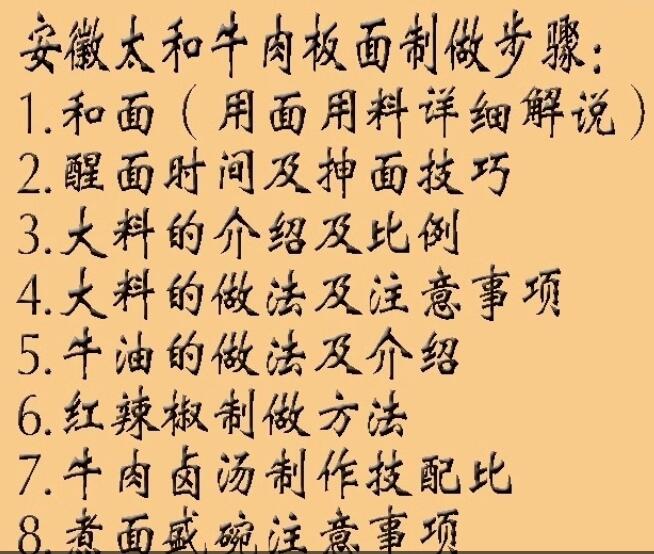 安徽太和牛肉板面制做步骤:
1.和面(用面用料详细解说)
2.醒面时间及抻面技巧
3.大料的介绍及比例
4.大料的做法及注意事项
5.牛油的做法及介绍
6.红辣椒制做方法
7.牛肉卤汤制作技配比
8.煮面盛碗注意事项